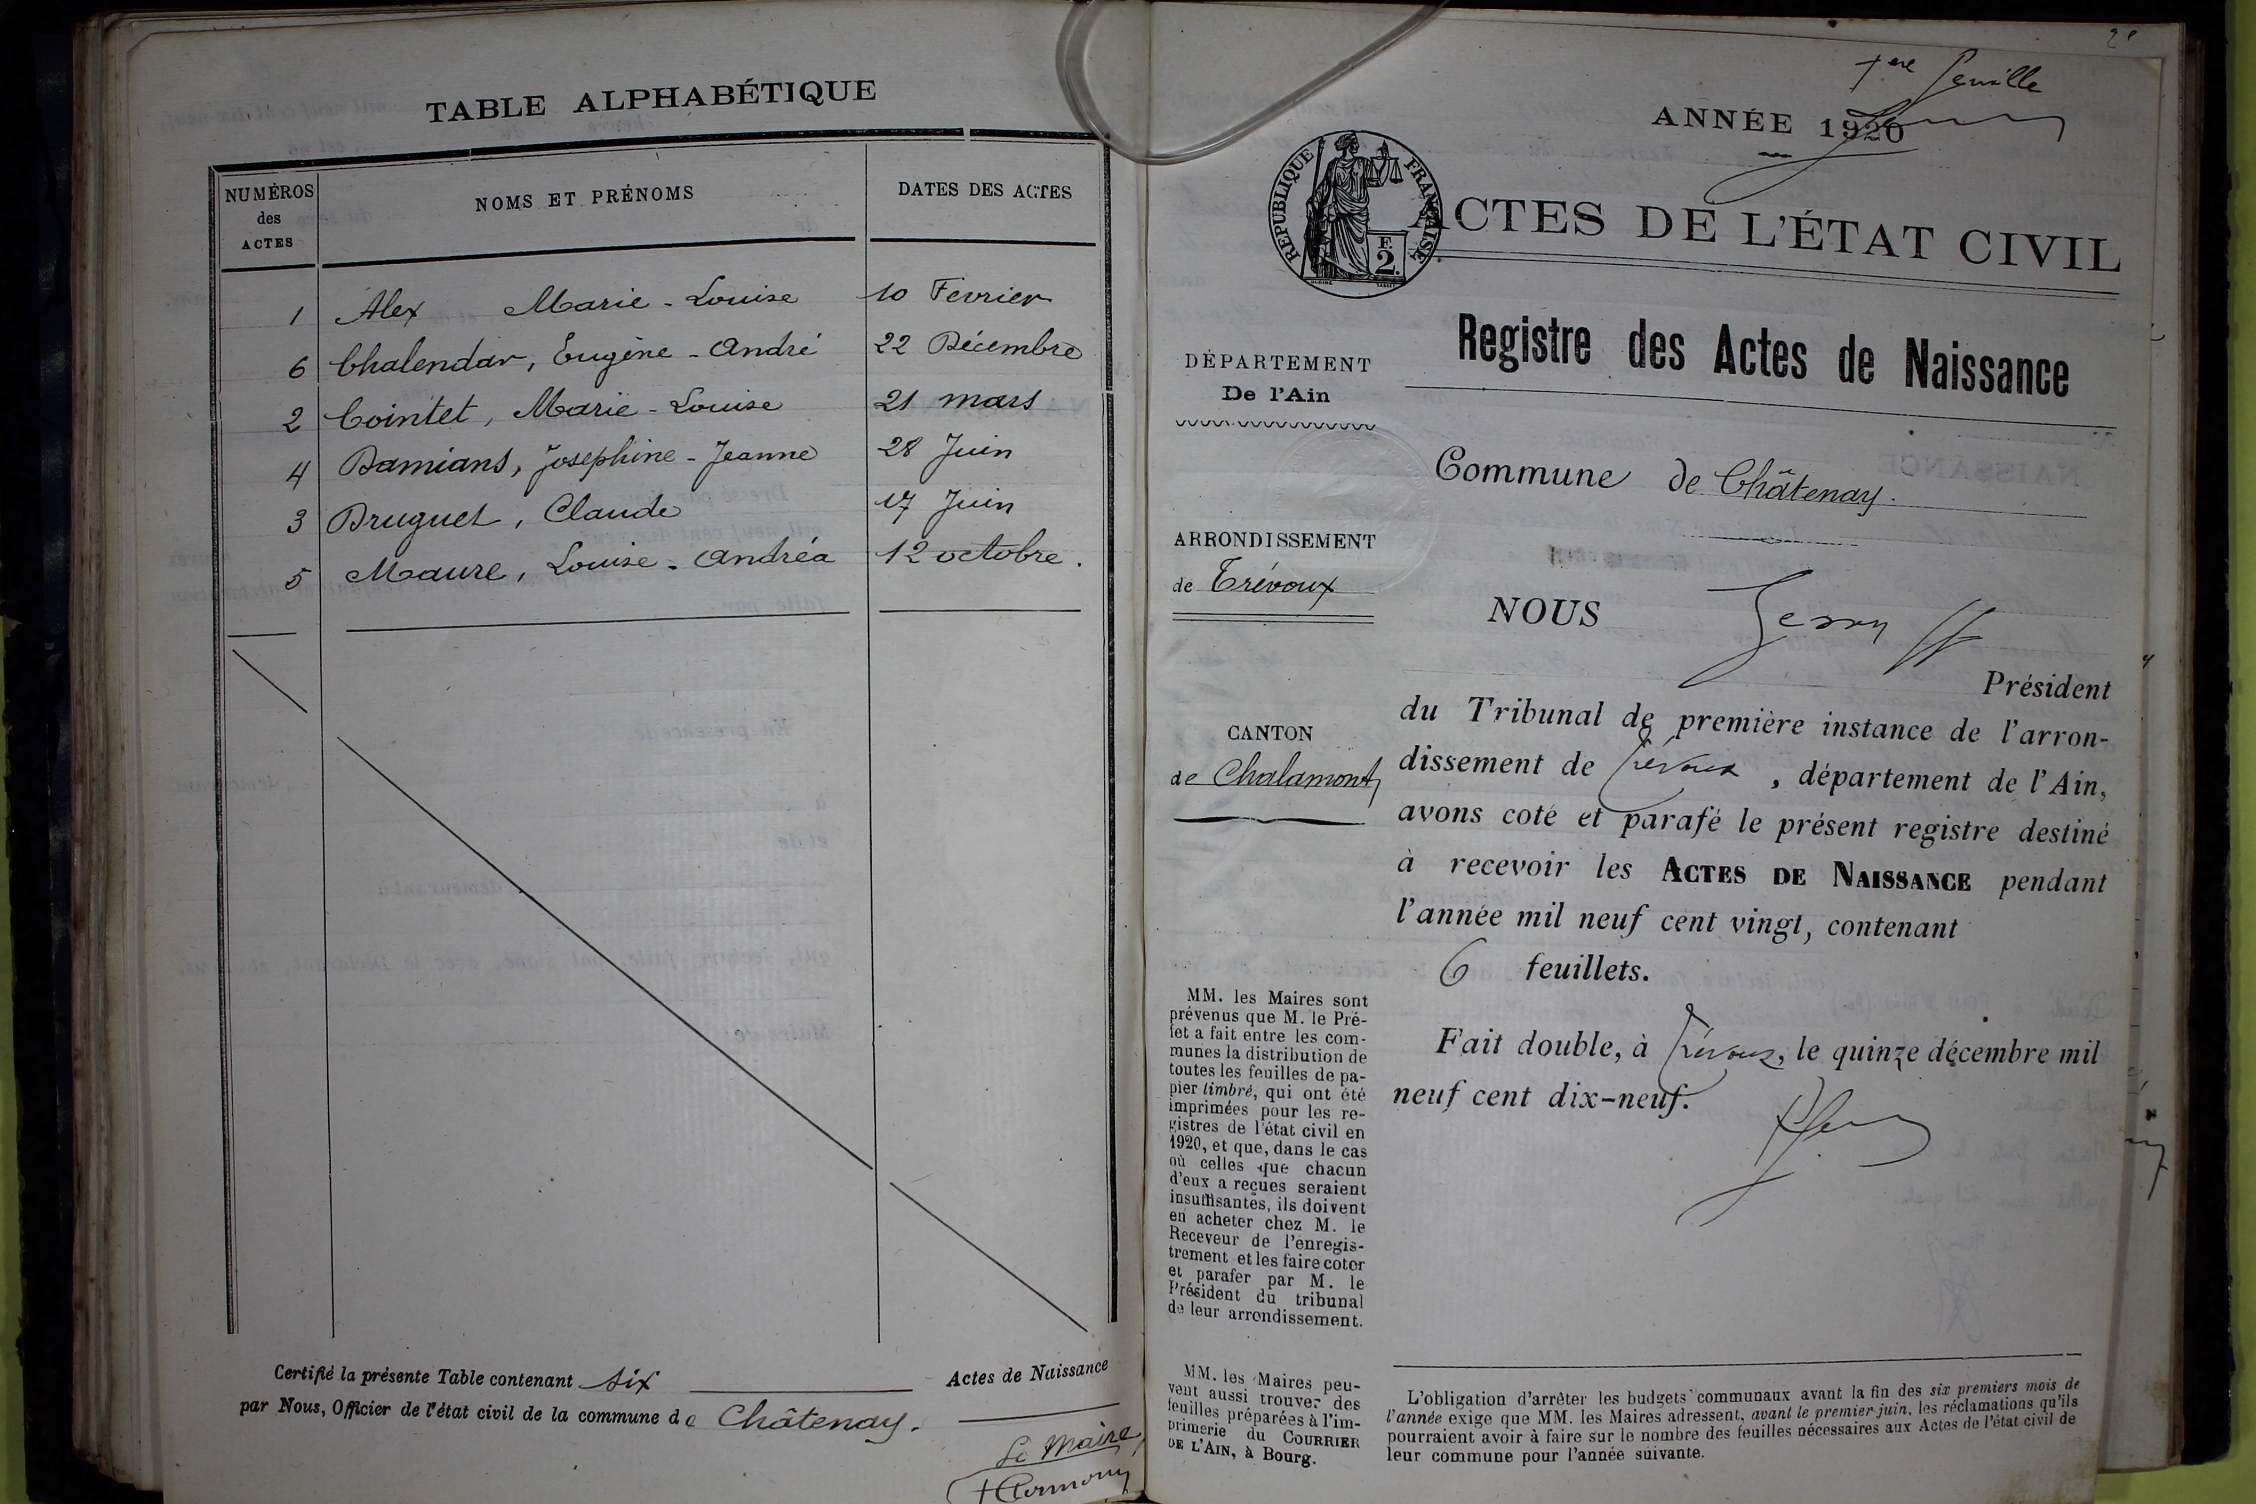 TABLE ALPHABÉTIQUE
NUMÉROS des ACTES
NOMS ET PRÉNOMS
DATES DES ACTES
1 Alex Marie-Louise 10 Fevrier
6 Chalendar, Eugène-André 22 Décembre
2 Cointet, Marie-Louise 21 mars
4 Damians, Josephine-Jeanne 28 Juin
3 Druguet, Claude 17 Juin
5 Maure, Louise-Andréa 12 octobre.
Certifié la présente Table contenant six Actes de Naissance
par Nous, Officier de l'état civil de la commune de Châtenay.
Le Maire,
1ere feuille
ANNÉE 1920
RÉPUBLIQUE FRANÇAISE
F.
2.
ACTES DE L'ÉTAT CIVIL
Registre des Actes de Naissance
DÉPARTEMENT
De l'Ain
Commune de Châtenay.
ARRONDISSEMENT
de Trévoux
CANTON
de Chalamont
NOUS
Président
du Tribunal de première instance de l'arron-
dissement de Trévoux, département de l'Ain,
avons coté et parafé le présent registre destiné
à recevoir les ACTES DE NAISSANCE pendant
l'année mil neuf cent vingt, contenant
6 feuillets.
Fait double, à Trévoux, le quinze décembre mil
neuf cent dix-neuf.
MM. les Maires sont
prévenus que M. le Pré-
fet a fait entre les com-
munes la distribution de
toutes les feuilles de pa-
pier timbré, qui ont été
imprimées pour les re-
gistres de l'état civil en
1920, et que, dans le cas
où celles que chacun
d'eux a reçues seraient
insuffisantes, ils doivent
en acheter chez M. le
Receveur de l'enregis-
trement et les faire coter
et parafer par M. le
Président du tribunal
de leur arrondissement.
MM. les Maires peu-
vent aussi trouver des
feuilles préparées à l'im-
primerie du COURRIER
DE L'AIN, à Bourg.
L'obligation d'arrêter les budgets communaux avant la fin des six premiers mois de
l'année exige que MM. les Maires adressent, avant le premier juin, les réclamations qu'ils
pourraient avoir à faire sur le nombre des feuilles nécessaires aux Actes de l'état civil de
leur commune pour l'année suivante.